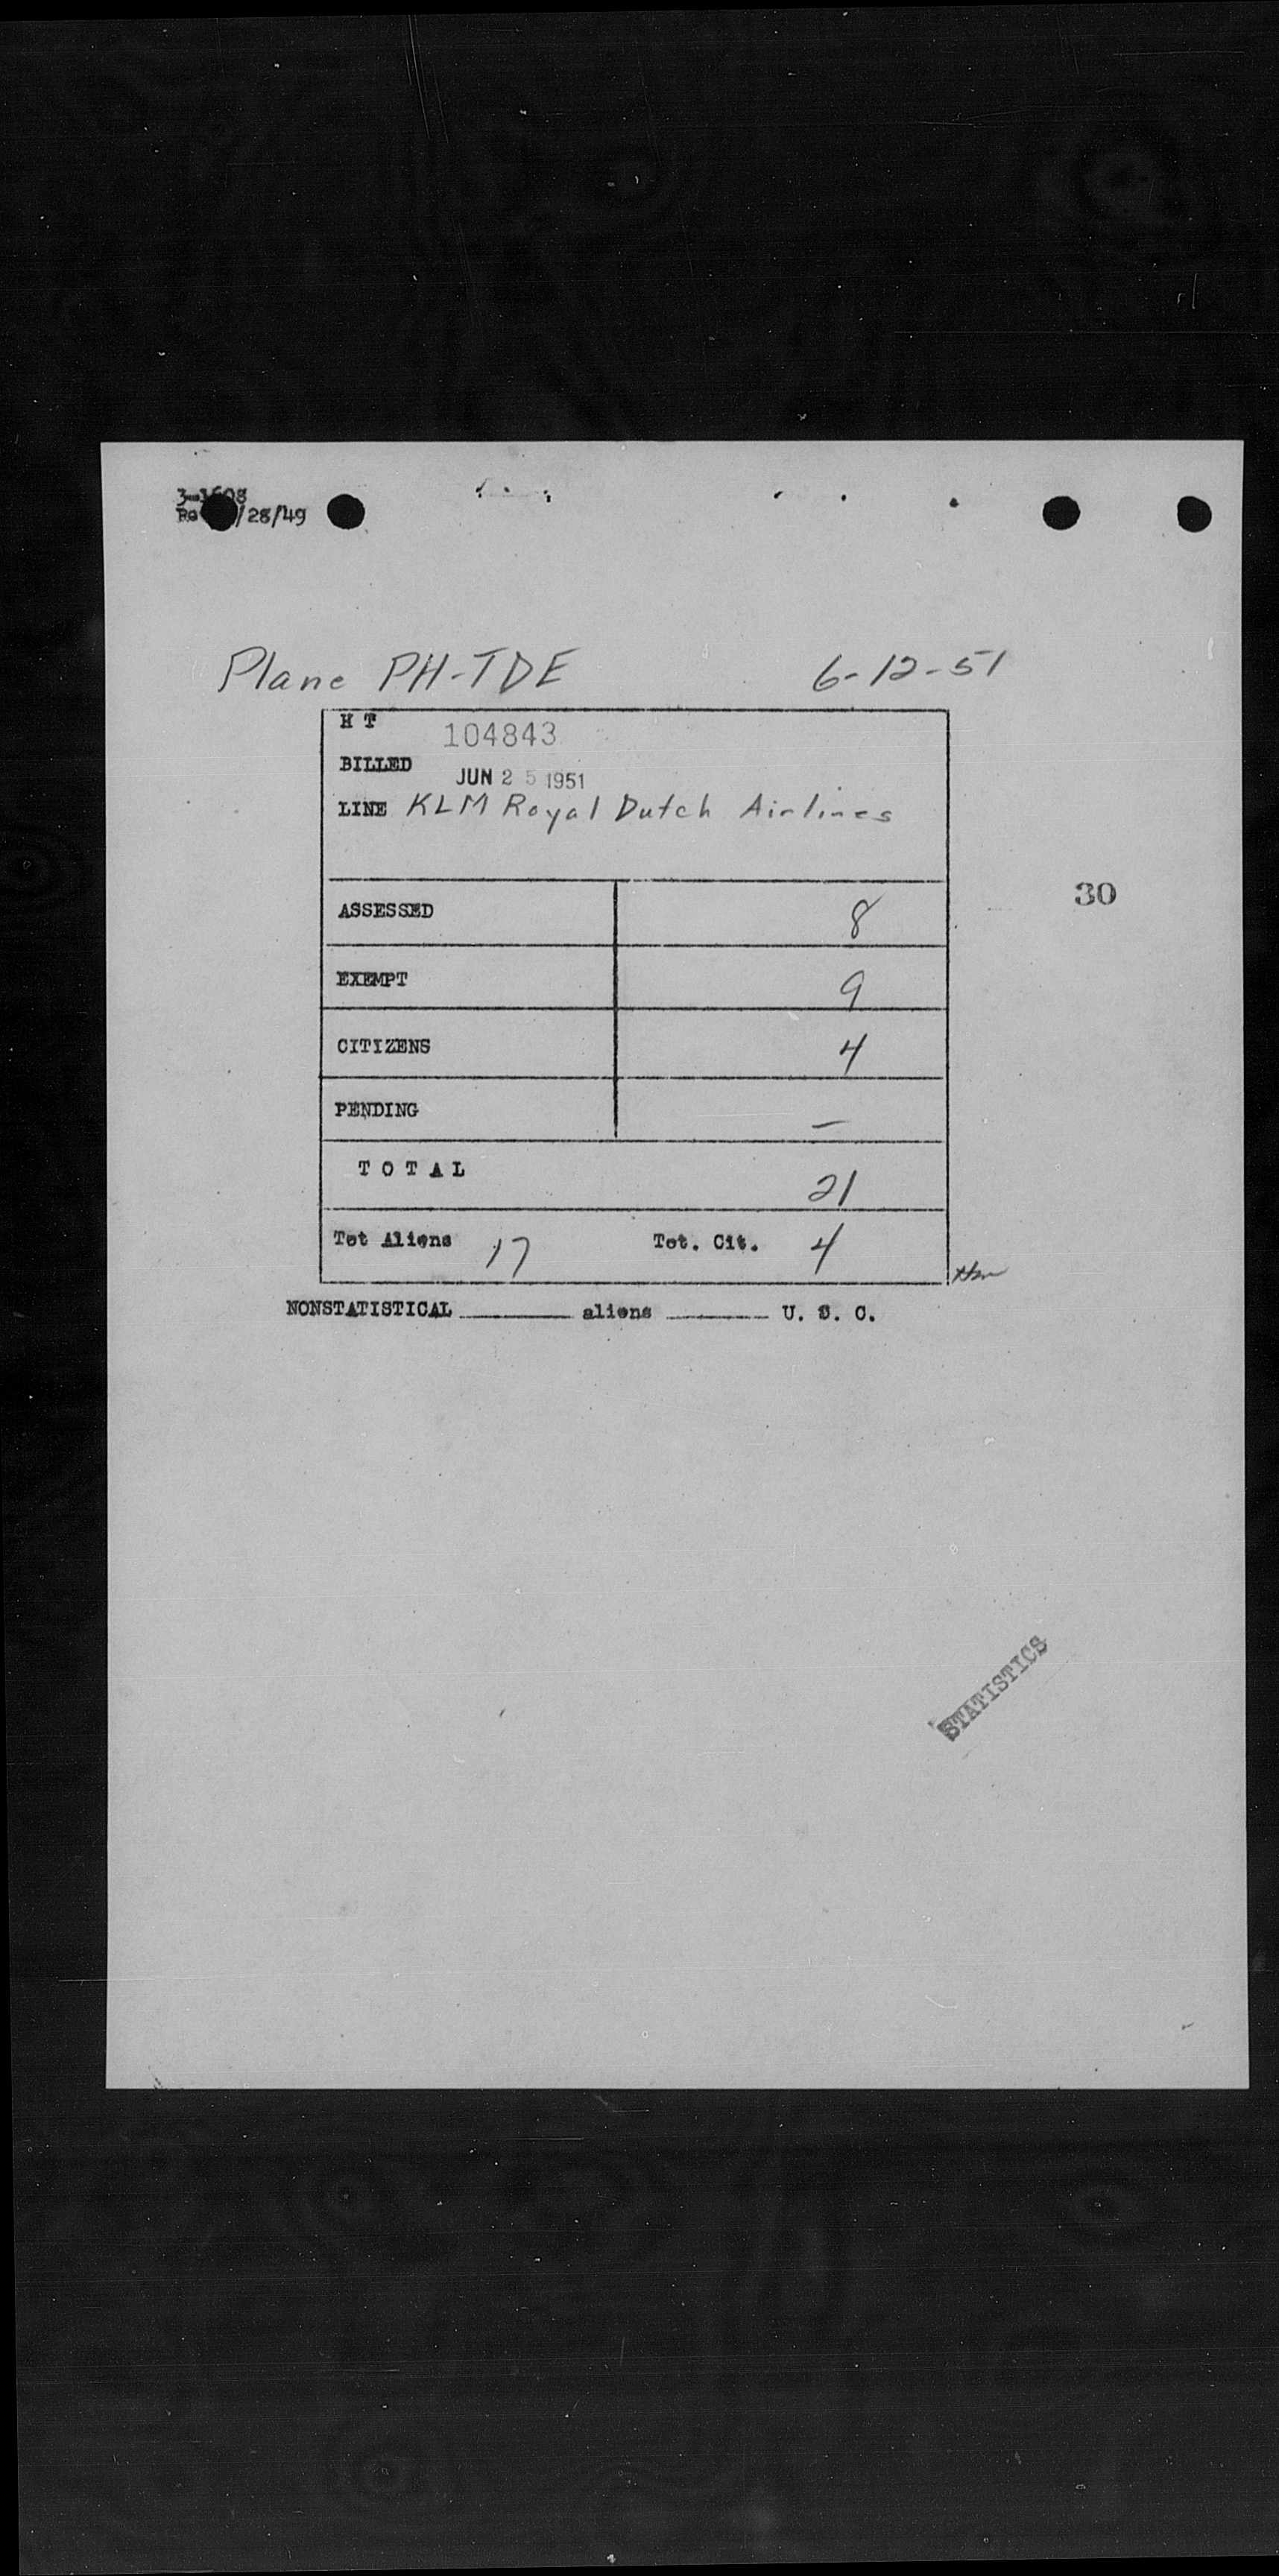 3-1608
/28/49
Plane PH-TDE 6-12-51
H T 104843
BILLED JUN 25 1951
LINE KLM Royal Dutch Airlines
30
ASSESSED 8
EXEMPT 9
CITIZENS 4
PENDING —
TOTAL 21
Tot Aliens 17 Tot. Cit. 4
NONSTATISTICAL ______ aliens ______ U. S. C.
STATISTICS